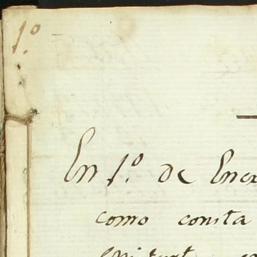 1.º
En 1.º de Ener
como consta